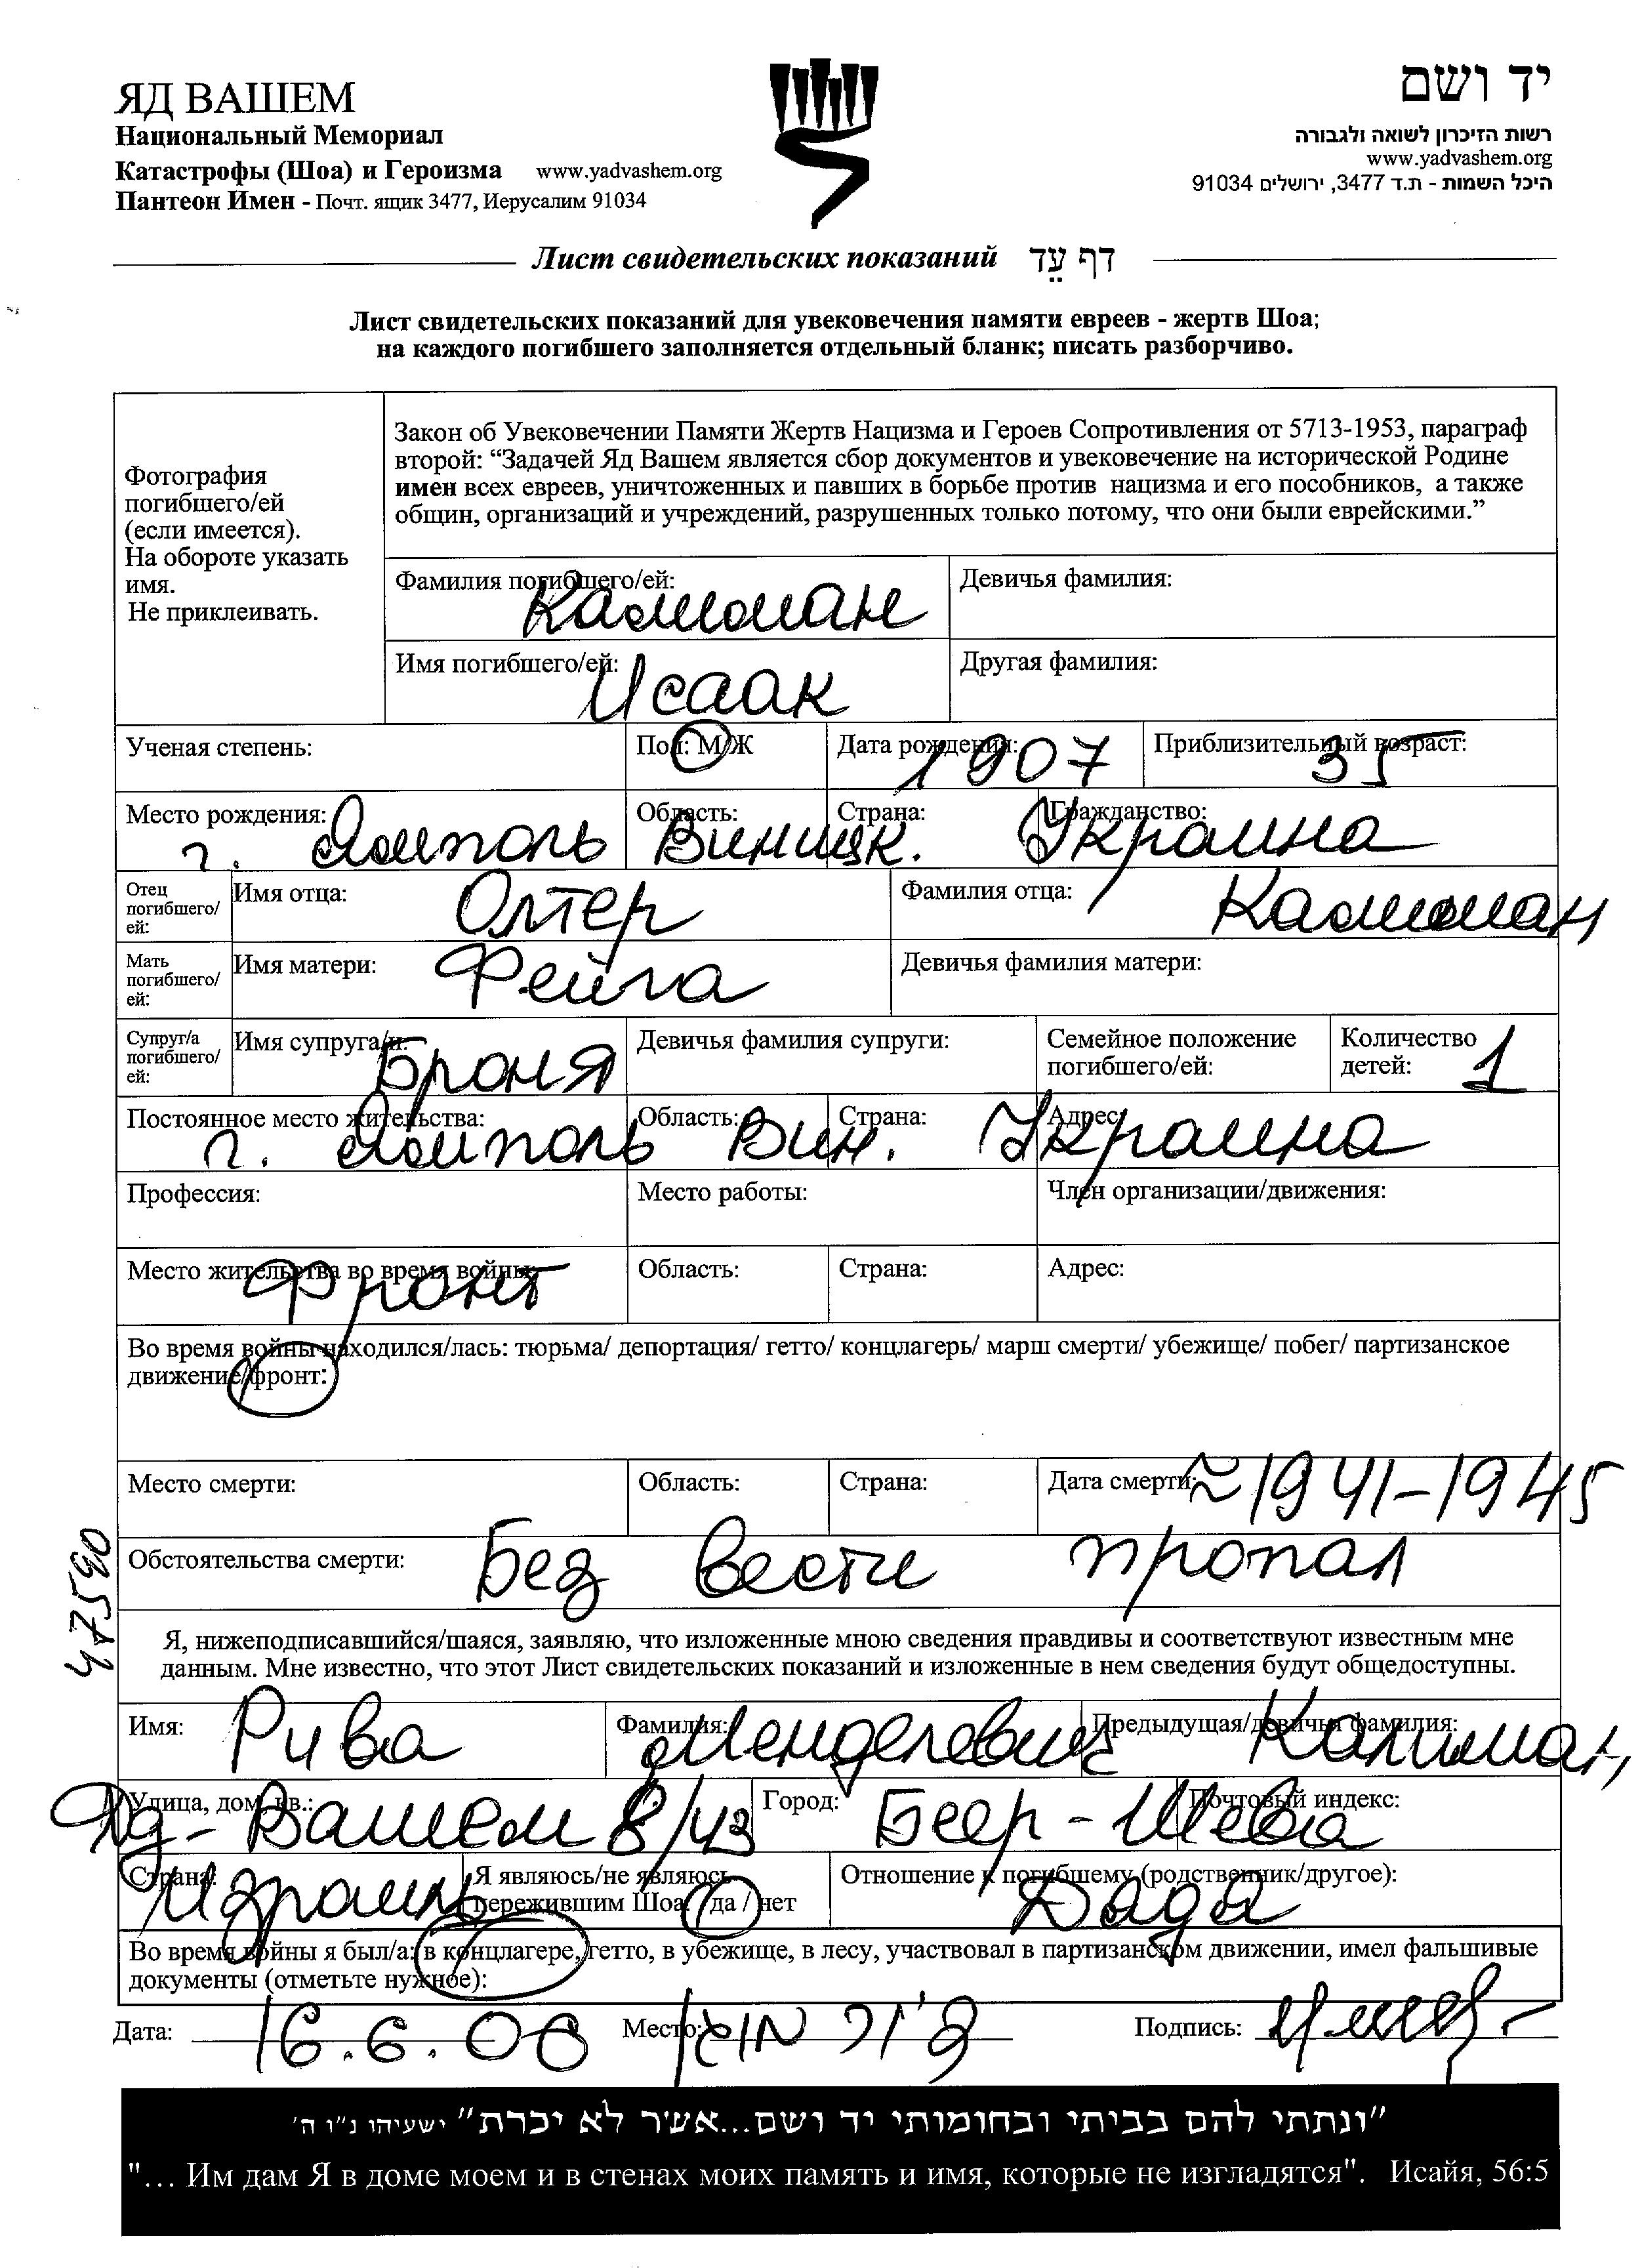 ЯД ВАШЕМ
Национальный Мемориал
Катастрофы (Шоа) и Героизма www.yadvashem.org
Пантеон Имен - Почт. ящик 3477, Иерусалим 91034
יד ושם
רשות הזיכרון לשואה ולגבורה
www.yadvashem.org
היכל השמות - ת.ד 3477, ירושלים 91034
Лист свидетельских показаний דף עֵד
Лист свидетельских показаний для увековечения памяти евреев - жертв Шоа;
на каждого погибшего заполняется отдельный бланк; писать разборчиво.
Фотография
погибшего/ей
(если имеется).
На обороте указать
имя.
Не приклеивать.
Закон об Увековечении Памяти Жертв Нацизма и Героев Сопротивления от 5713-1953, параграф
второй: “Задачей Яд Вашем является сбор документов и увековечение на исторической Родине
имен всех евреев, уничтоженных и павших в борьбе против нацизма и его пособников, а также
общин, организаций и учреждений, разрушенных только потому, что они были еврейскими.”
Фамилия погибшего/ей: Калиман Девичья фамилия:
Имя погибшего/ей: Исаак Другая фамилия:
Ученая степень: Пол: М/Ж Дата рождения: 1907 Приблизительный возраст: 35
Место рождения: г. Ямполь Область: Виницк. Страна: Гражданство: Украина
Отец погибшего/ей: Имя отца: Олтер Фамилия отца: Калиман
Мать погибшего/ей: Имя матери: Фейга Девичья фамилия матери:
Супруг/а погибшего/ей: Имя супруга/и: Броня Девичья фамилия супруги: Семейное положение погибшего/ей: Количество детей: 1
Постоянное место жительства: г. Ямполь Область: Вин. Страна: Адрес: Украина
Профессия: Место работы: Член организации/движения:
Место жительства во время войны: Фронт Область: Страна: Адрес:
Во время войны находился/лась: тюрьма/ депортация/ гетто/ концлагерь/ марш смерти/ убежище/ побег/ партизанское
движение/фронт:
Место смерти: Область: Страна: Дата смерти: ≈1941-1945
Обстоятельства смерти: Без вести пропал
47590
Я, нижеподписавшийся/шаяся, заявляю, что изложенные мною сведения правдивы и соответствуют известным мне
данным. Мне известно, что этот Лист свидетельских показаний и изложенные в нем сведения будут общедоступны.
Имя: Рива Фамилия: Менделевич Предыдущая/девичья фамилия: Калиман
Улица, дом, кв.: Яд-Вашем 8/43 Город: Беер-Шева Почтовый индекс:
Страна: Израиль Я являюсь/не являюсь пережившим Шоа: да / нет Отношение к погибшему (родственник/другое): Дядя
Во время войны я был/а: в концлагере, гетто, в убежище, в лесу, участвовал в партизанском движении, имел фальшивые
документы (отметьте нужное):
Дата: 16.6.06 Место: Подпись:
"ונתתי להם בביתי ובחומותי יד ושם...אשר לא יכרת" ישעיהו נ"ו ה'
"... Им дам Я в доме моем и в стенах моих память и имя, которые не изгладятся". Исайя, 56:5